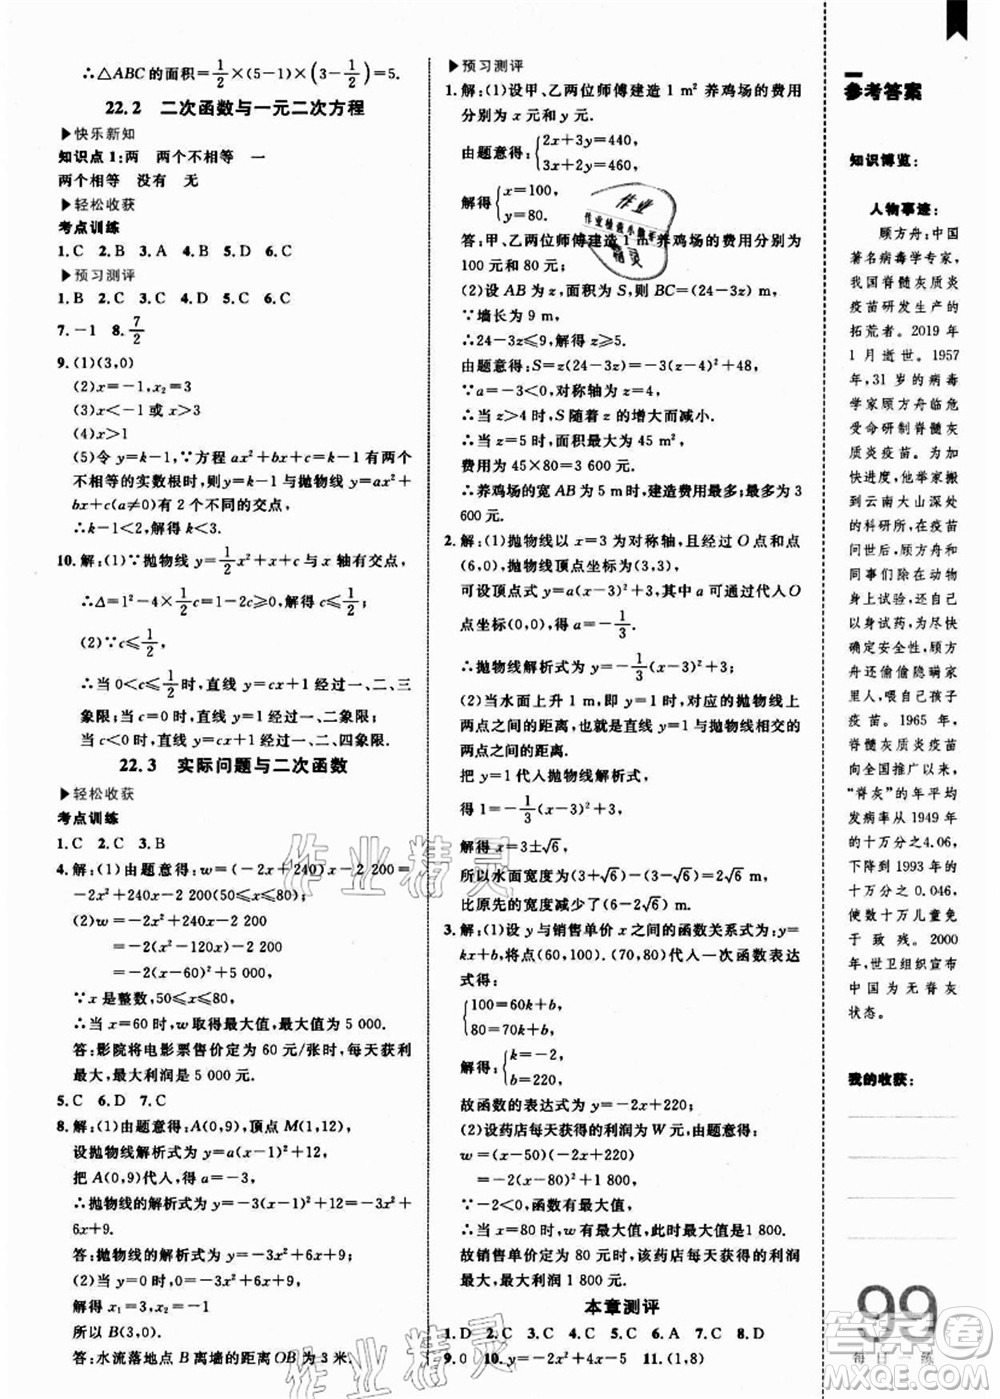 ∴△ABC的面积=1/2×(5-1)×(3-1/2)=5.
22.2 二次函数与一元二次方程
▶快乐新知
知识点1:两 两个不相等 一
两个相等 没有 无
▶轻松收获
考点训练
1.C 2.B 3.A 4.C 5.C
▶预习测评
1.B 2.C 3.C 4.D 5.D 6.C
7.-1 8.7/2
9.(1)(3,0)
(2)x₁=-1,x₂=3
(3)x<-1或x>3
(4)x>1
(5)令y=k-1,∵方程ax²+bx+c=k有两个
不相等的实数根时,则y=k-1与抛物线y=ax²+
bx+c(a≠0)有2个不同的交点,
∴k-1<2,解得k<3.
10.解:(1)∵抛物线y=1/2x²+x+c与x轴有交点,
∴△=1²-4×1/2c=1-2c≥0,解得c≤1/2;
(2)∵c≤1/2,
∴当0<c≤1/2时,直线y=cx+1经过一、二、三
象限;当c=0时,直线y=1经过一、二象限;
当c<0时,直线y=cx+1经过一、二、四象限.
22.3 实际问题与二次函数
▶轻松收获
考点训练
1.C 2.C 3.B
4.解:(1)由题意得:w=(-2x+240)x-2 200=
-2x²+240x-2 200(50≤x≤80);
(2)w=-2x²+240x-2 200
=-2(x²-120x)-2 200
=-2(x-60)²+5 000,
∵x是整数,50≤x≤80,
∴当x=60时,w取得最大值,最大值为5 000.
答:影院将电影票售价定为60元/张时,每天获利
最大,最大利润是5 000元.
5.C 6.D 7.C
8.解:(1)由题意得:A(0,9),顶点M(1,12),
设抛物线解析式为y=a(x-1)²+12,
把A(0,9)代入得,a=-3,
∴抛物线的解析式为y=-3(x-1)²+12=-3x²+
6x+9.
答:抛物线的解析式为y=-3x²+6x+9;
(2)当y=0时,0=-3x²+6x+9,
解得x₁=3,x₂=-1(不合题意,舍去)
所以B(3,0).
答:水流落地点B离墙的距离OB为3米.
▶预习测评
1.解:(1)设甲、乙两位师傅建造1 m²养鸡场的费用
分别为x元、y元,
由题意得:{2x+3y=440,
3x+2y=460,
解得{x=100,
y=80.
答:甲、乙两位师傅建造1 m²养鸡场的费用分别为
100元和80元;
(2)设AB为z m,面积为S,则BC=(24-3z)m,
∵墙长为9 m,
∴24-3z≤9,解得:z≥5.
由题意得:S=z(24-3z)=-3(z-4)²+48,
∵a=-3<0,对称轴为z=4,
∴当z>4时,S随z的增大而减小.
∴当z=5时,面积最大为45 m²,
费用为45×80=3 600元.
∴养鸡场的宽AB为5 m时,建造费用最多;最多为3
600元.
2.解:(1)抛物线以x=3为对称轴,且经过O点和
(6,0),抛物线顶点坐标为(3,3),
可设顶点式为y=a(x-3)²+3,由可通过代入O
点坐标(0,0),得a=-1/3.
∴抛物线解析式为y=-1/3(x-3)²+3;
(2)当水面上升1 m时,对应的抛物线上
两点之间的距离,也就是直线y=1与抛物线相交的
两点之间的距离.
把y=1代入抛物线解析式,
得1=-1/3(x-3)²+3,
解得x=3±√6,
所以水面宽度为(3+√6)-(3-√6)=2√6m,
比原先的宽度减少了(6-2√6)m.
3.解:(1)设y与销售单价x之间的函数关系式为:y=
kx+b,将点(60,100),(70,80)代入一次函数表达
式得:
{100=60k+b,
80=70k+b,
解得:{k=-2,
b=220,
故函数的表达式为:y=-2x+220;
(2)设药店每天获得的利润为W元,由题意得:
w=(x-50)(-2x+220)
=-2(x-80)²+1 800,
∵-2<0,函数有最大值,
∴当x=80时,w有最大值,此时最大值是1 800,
故销售单价定为80元时,该药店每天获得的利润
最大,最大利润1 800元.
本章测评
1.D 2.C 3.C 4.D 5.C 6.C 7.D 8.D
9.0 10.y=-2x²+4x-5 11.(1,8)
参考答案
知识博览:
人物事迹:
顾方舟:中国
著名病毒学专家,
我国脊髓灰质炎
疫苗研发生产的
拓荒者。2019年
1月逝世。1957
年,31岁的病毒
学家顾方舟临危
受命研制脊髓灰
质炎疫苗。为加
快进度,他举家搬
到云南大山深处
的科研所,在疫苗
问世以后,顾方舟
亲身试验,还在尚
以身试药,为尽快
确定安全性,顾方
舟还偷偷隐瞒家
里人,喂自己孩子
疫苗。1965年,
脊髓灰质炎疫苗
向全国推广以来,
“脊灰”的年平均
发病率从1949年
的十万分之4.06,
下降到1993年的
十万分之0.046,
使数十万儿童免
于致残。2000
年,世卫组织宣布
中国为无脊灰
状态。
我的收获:
99
每日一练
作业精灵
作业检查小能手
作业精灵
答案卷